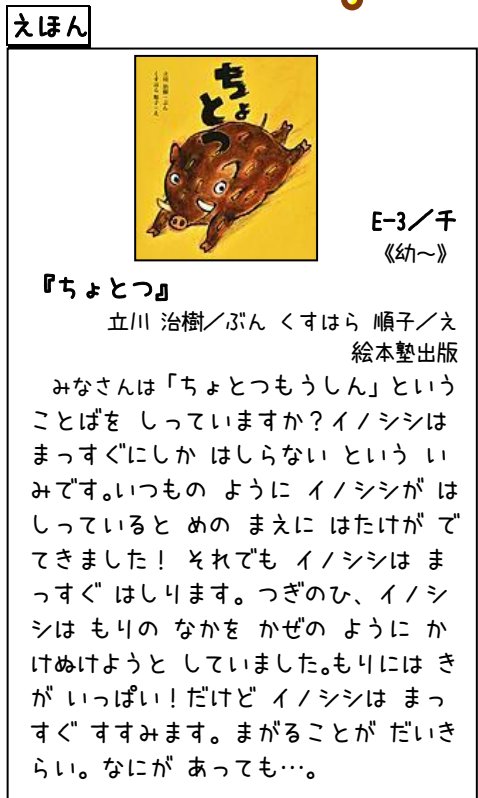 えほん
ちょとつ
立川 治樹・ぶん
くすはら 順子・え
E-3／千
《幼～》
『ちょとつ』
立川 治樹／ぶん くすはら 順子／え
絵本塾出版
みなさんは「ちょとつもうしん」という
ことばを しっていますか？イノシシは
まっすぐにしか はしらない という い
みです。いつもの ように イノシシが は
しっていると めの まえに はたけが で
てきました！ それでも イノシシは ま
っすぐ はしります。つぎのひ、イノシ
シは もりの なかを かぜの ように か
けぬけようと していました。もりには き
が いっぱい！だけど イノシシは まっ
すぐ すすみます。まがることが だいき
らい。なにが あっても…。